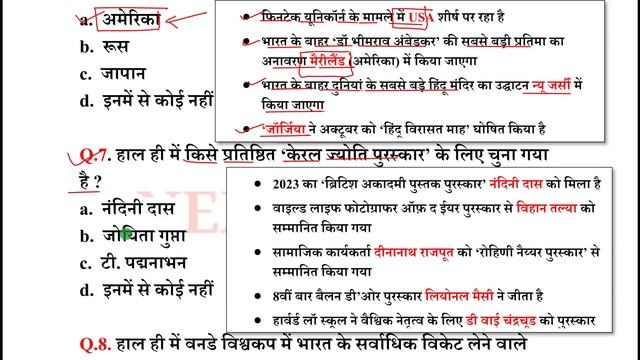 a. अमेरिका
b. रूस
c. जापान
d. इनमें से कोई नहीं
• फिनटेक यूनिकॉर्न के मामले में USA शीर्ष पर रहा है
• भारत के बाहर 'डॉ भीमराव अंबेडकर' की सबसे बड़ी प्रतिमा का
अनावरण मैरीलैंड (अमेरिका) में किया जाएगा
• भारत के बाहर दुनियां के सबसे बड़े हिंदू मंदिर का उद्घाटन न्यू जर्सी में
किया जाएगा
• 'जॉर्जिया ने अक्टूबर को 'हिंदू विरासत माह' घोषित किया है
Q.7. हाल ही में किसे प्रतिष्ठित 'केरल ज्योति पुरस्कार' के लिए चुना गया
है ?
a. नंदिनी दास
b. जोयिता गुप्ता
c. टी. पद्मनाभन
d. इनमें से कोई नहीं
• 2023 का 'ब्रिटिश अकादमी पुस्तक पुरस्कार' नंदिनी दास को मिला है
• वाइल्ड लाइफ फोटोग्राफर ऑफ़ द ईयर पुरस्कार से विहान तल्या को
सम्मानित किया गया
• सामाजिक कार्यकर्ता दीनानाथ राजपूत को 'रोहिणी नैय्यर पुरस्कार' से
सम्मानित किया गया
• 8वीं बार बैलन डी'ओर पुरस्कार लियोनल मैसी ने जीता है
• हार्वर्ड लॉ स्कूल ने वैश्विक नेतृत्व के लिए डी वाई चंद्रचूड को पुरस्कार
Q.8. हाल ही में वनडे विश्वकप में भारत के सर्वाधिक विकेट लेने वाले